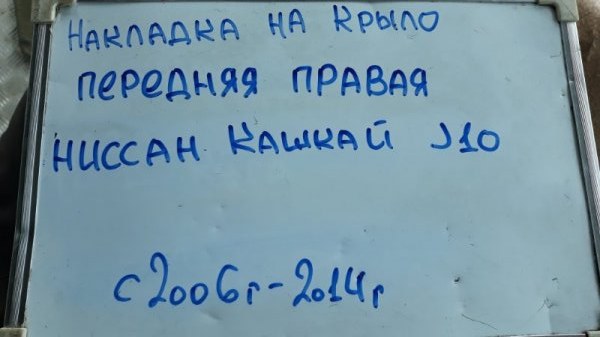 Накладка на крыло
передняя правая
Ниссан Кашкай J10
с 2006г-2014г